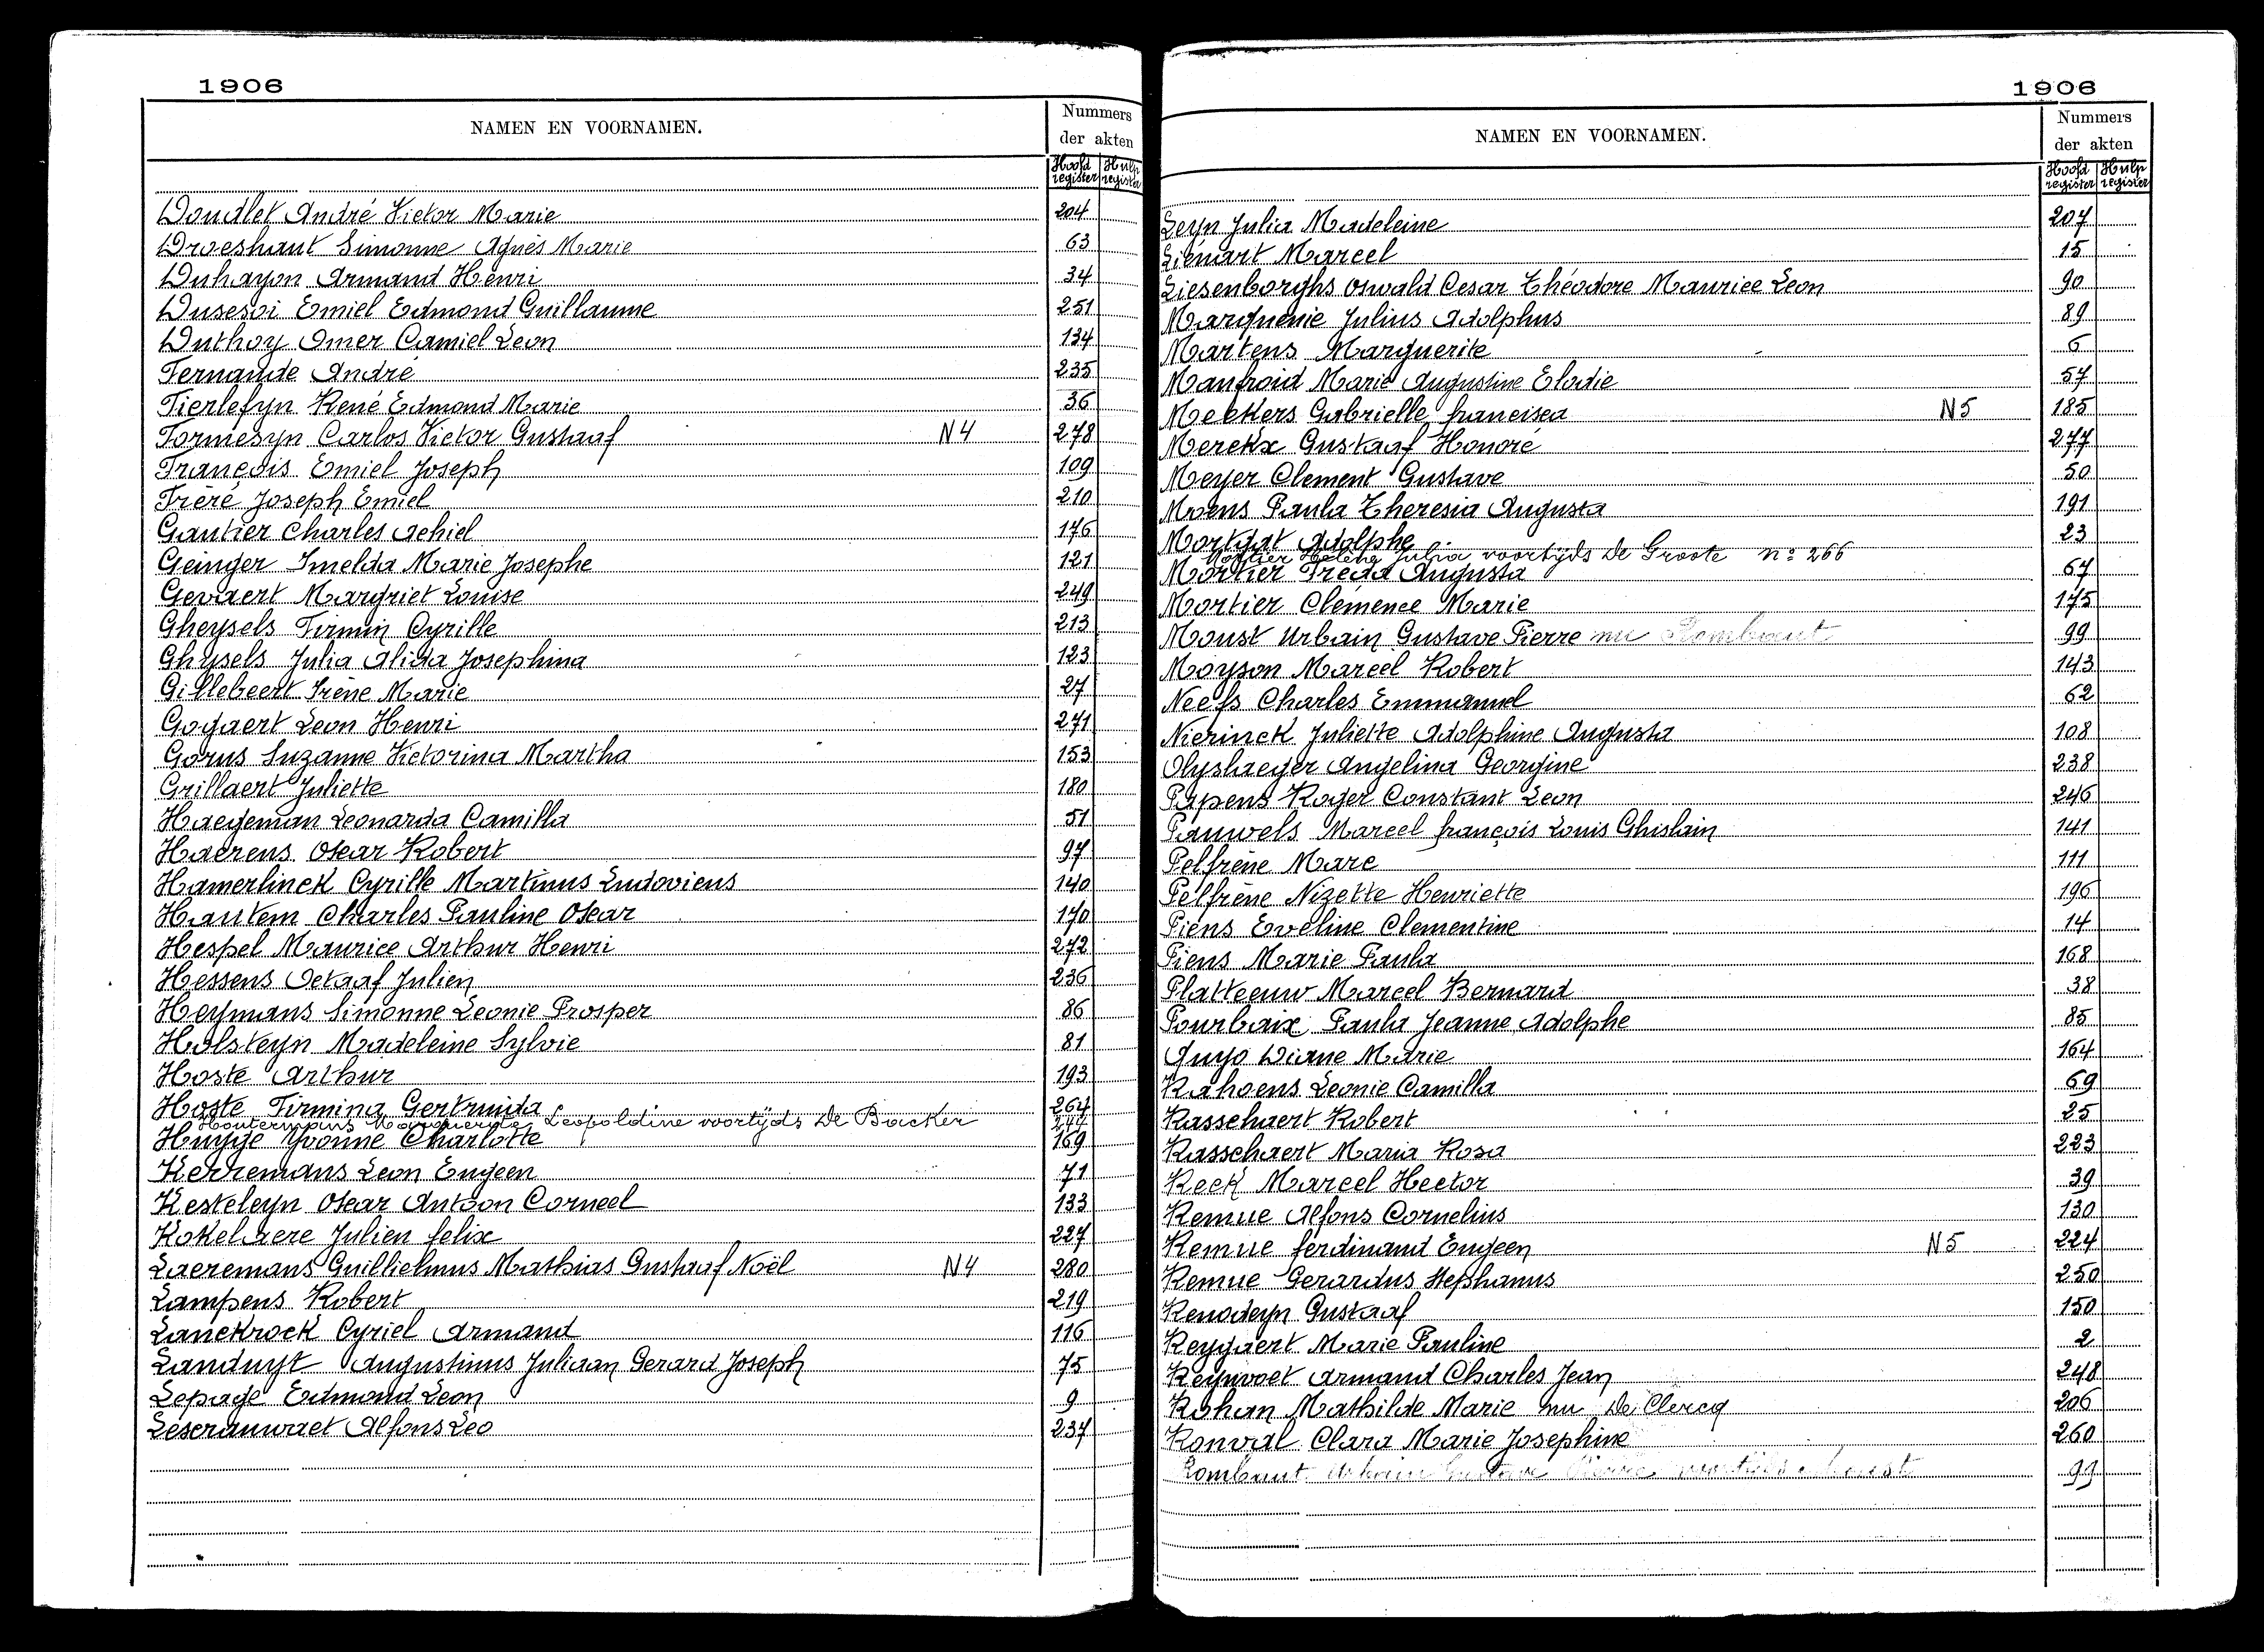 1906
NAMEN EN VOORNAMEN.
Nummers
der akten
Hoofd register
Hulp register
Doudlet André Victor Marie 204
Droeshaut Simonne Agnès Marie 63
Duhayon Armand Henri 34
Dusesoi Emiel Edmond Guillaume 251
Duthoy Omer Camiel Leon 134
Fernande André 235
Fierlefyn René Edmond Marie 36
Formesyn Carlos Victor Gustaaf N4 278
François Emiel Joseph 109
Frère Joseph Emiel 210
Gautier Charles Achiel 176
Geinger Imelda Marie Josephe 121
Gevaert Margriet Louise 249
Gheysels Firmin Cyrille 213
Ghysels Julia Alida Josephina 123
Gillebeert Irène Marie 27
Gogaert Leon Henri 271
Gorus Suzanne Victorina Martha 153
Grillaert Juliette 180
Haegeman Leonarda Camilla 51
Haerens Oscar Robert 97
Hamerlinck Cyrille Martinus Ludovicus 140
Hautem Charles Pauline Oscar 170
Hespel Maurice Arthur Henri 272
Hessens Octaaf Julien 236
Heymans Simonne Leonie Prosper 86
Holsteyn Madeleine Sylvie 81
Hoste Arthur 193
Hoste Firmina Gertruida 264
Houtermans Marguerite Leopoldine voortijds De Backer
Huyge Yvonne Charlotte 169
Kerremans Leon Eugeen 71
Kesteleyn Oscar Antoon Corneel 133
Kokelaere Julien felix 227
Laeremans Guillielmus Mathias Gustaaf Noël N4 280
Lampens Robert 219
Lanckrock Cyriel Armand 116
Landuyt Augustinus Juliaan Gerard Joseph 75
Lepage Edmond Leon 9
Lescrauwaet Alfons Leo 237
1906
NAMEN EN VOORNAMEN.
Nummers
der akten
Hoofd register
Hulp register
Leyn Julia Madeleine 207
Liénart Marcel 15
Liesenborghs Oswald Cesar Théodore Maurice Leon 90
Marquenie Julius Adolphus 89
Martens Marguerite 6
Maufroid Marie Augustine Elodie 57
Meekers Gabrielle francisca N5 185
Merckx Gustaaf Honoré 277
Meyer Clement Gustave 50
Moens Paula Theresia Augusta 191
Mortgat Adolphe 23
Mortier Helena Julia voortijds De Groote nº 266
Mortier Freda Augusta 67
Mortier Clemence Marie 175
Moust Urbain Gustave Pierre nu Rombaut 99
Moyson Marcel Robert 143
Neefs Charles Emmanuel 62
Nierinck Juliette Adolphine Augusta 108
Olyslaeger Angelina Georgine 238
Papens Roger Constant Leon 246
Pauwels Marcel françois Louis Ghislain 141
Pelfrène Marc 111
Pelfrène Nizette Henriette 196
Piens Eveline Clementine 14
Piens Marie Paula 168
Platteeuw Marcel Bernard 38
Pourbaix Paula Jeanne Adolphe 85
Quyo Diane Marie 164
Rahoens Leonie Camilla 69
Rasschaert Robert 25
Rasschaert Maria Rosa 223
Reek Marcel Hector 39
Remue Alfons Cornelius 130
Remue ferdinand Eugeen N5 224
Remue Gerardus Stephanus 250
Renodeyn Gustaaf 150
Reygaert Marie Pauline 2
Reynvoet Armand Charles Jean 248
Rohan Mathilde Marie nu De Clercq 206
Ronval Clara Marie Josephine 260
Rombaut Urbain Gustave Pierre voortijds Moust 99